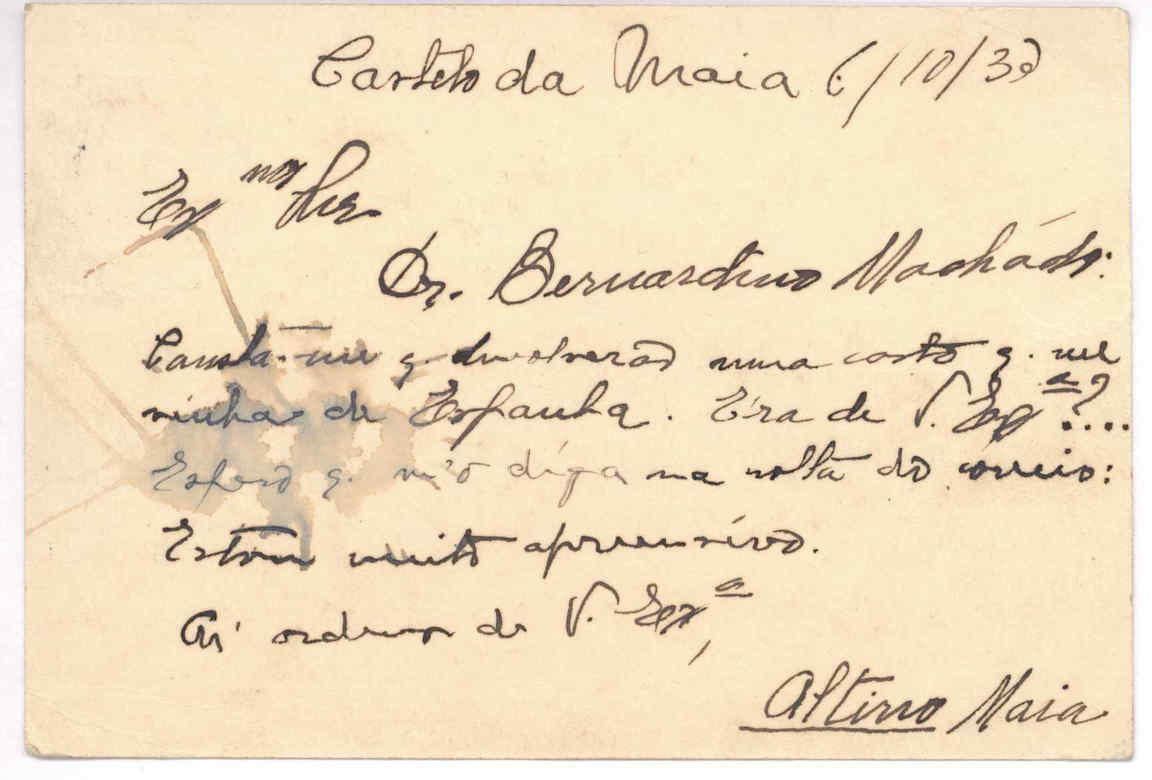 Castelo da Maia 6/10/30
Ex mo Snr.
Dr. Bernardino Machádo:
Consta-me q. devolverão uma carta q. me
vinha de Espanha. Era de V. Exª?....
Espero q. m'o diga na volta do correio:
Estou muito apreensivo.
Ás ordens de V. Exª,
Altino Maia